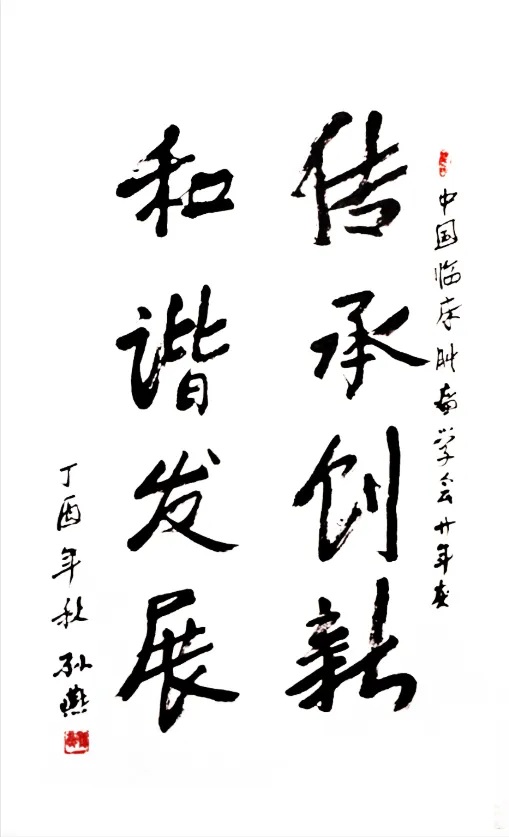 中国临床肿瘤学会廿年庆
传承创新
和谐发展
丁酉年秋 孙燕